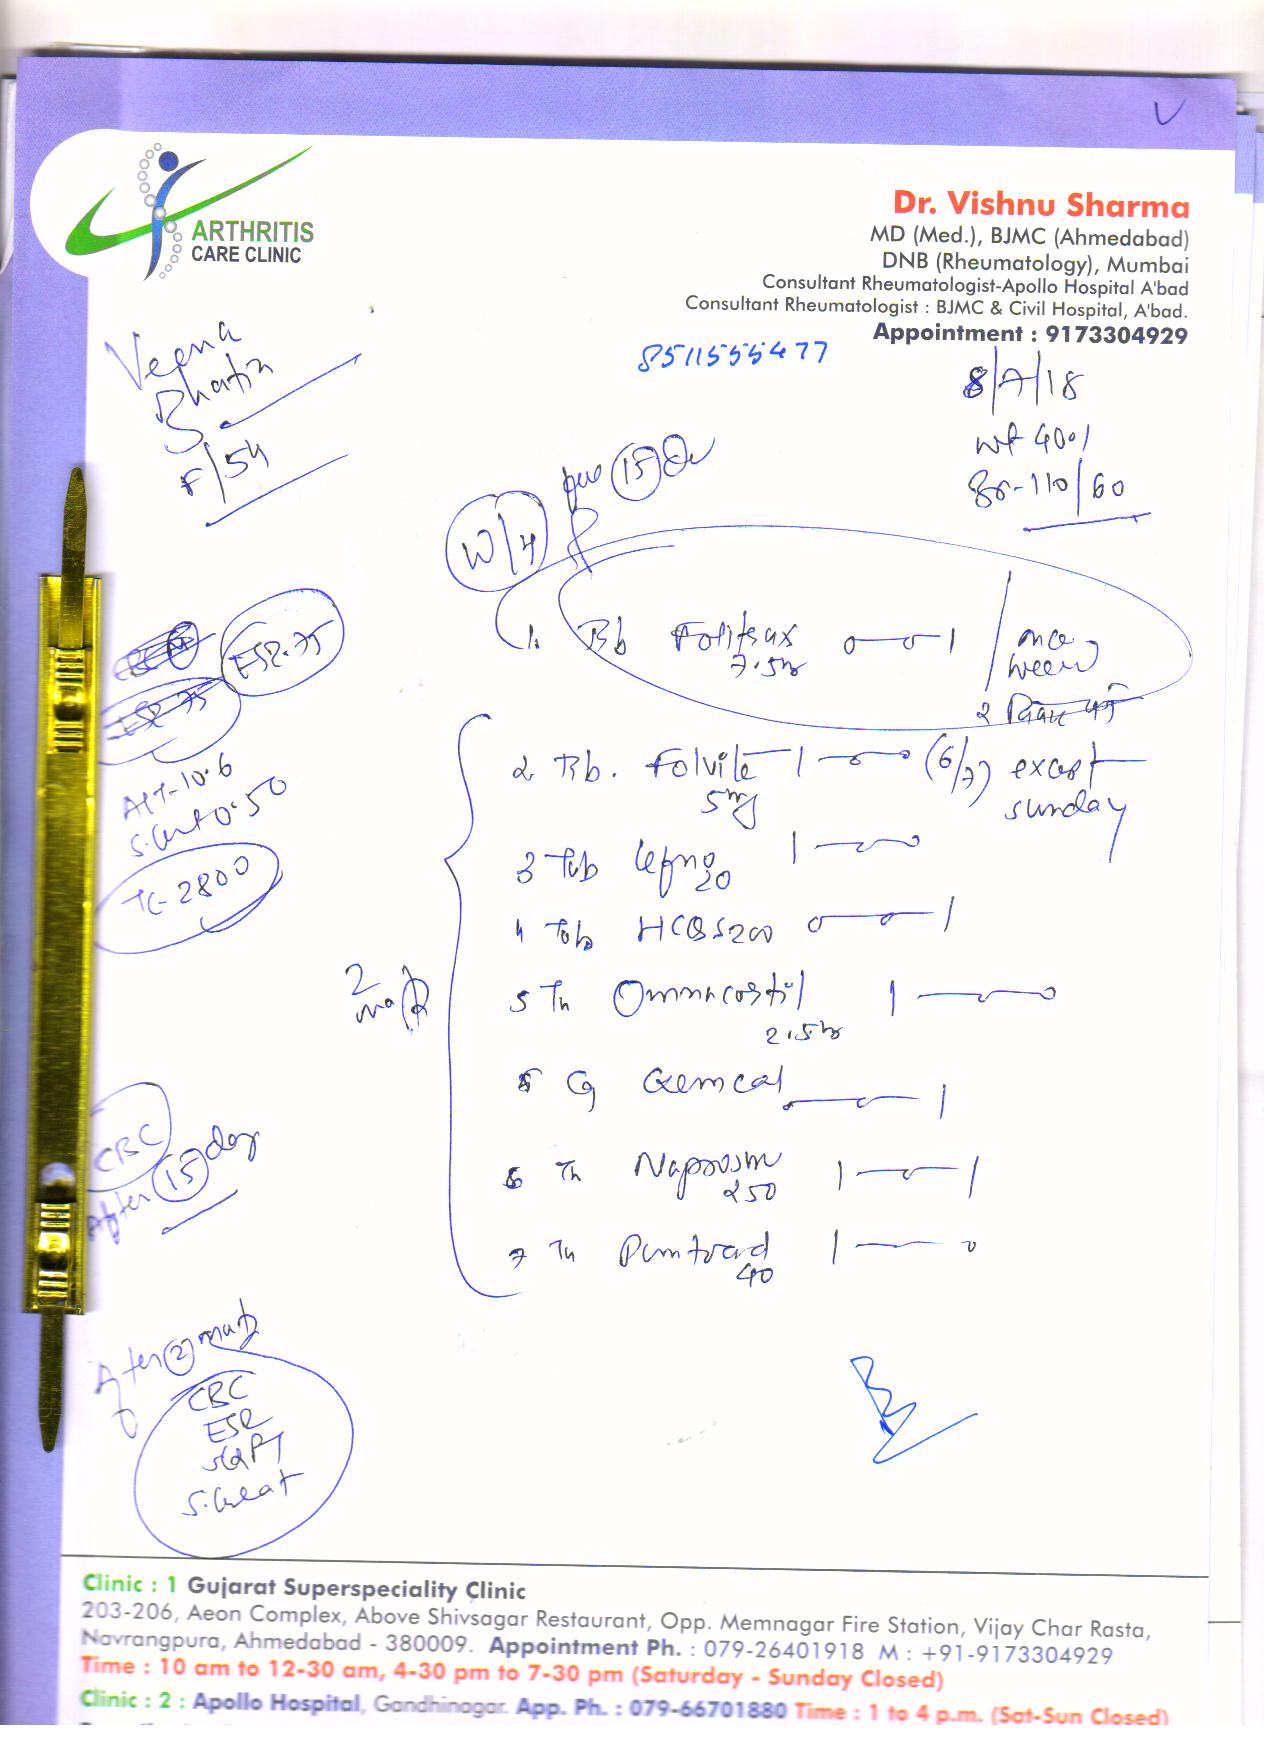 ARTHRITIS
CARE CLINIC
Dr. Vishnu Sharma
MD (Med.), BJMC (Ahmedabad)
DNB (Rheumatology), Mumbai
Consultant Rheumatologist-Apollo Hospital A'bad
Consultant Rheumatologist : BJMC & Civil Hospital, A'bad.
Appointment : 9173304929
8511555477
Veena
Bhatia
F/54
8/7/18
wt 40.1
110/60
W/4
15
ESR-75
ESR 75
10.6
0.50
TC-2800
1. Tab Folitrax 0—0—1 / once
7.5 week
2 Tab. Folvite 1—0—0 (6/7) except
5mg sunday
3 Tab Lefno 1—0—0
20
4 Tab HCQS 200 0—0—1
5 Omnacortil 1—0—0
2.5
Gemcal 0—0—1
6 Naprosyn 1—0—1
250
7 Pantocid 1—0
40
2
CBC
After 15 day
After 2
CBC
ESR
SGPT
S.Creat
Clinic : 1 Gujarat Superspeciality Clinic
203-206, Aeon Complex, Above Shivsagar Restaurant, Opp. Memnagar Fire Station, Vijay Char Rasta,
Navrangpura, Ahmedabad - 380009. Appointment Ph. : 079-26401918 M : +91-9173304929
Time : 10 am to 12-30 am, 4-30 pm to 7-30 pm (Saturday - Sunday Closed)
Clinic : 2 : Apollo Hospital, Gandhinagar. App. Ph. : 079-66701880 Time : 1 to 4 p.m. (Sat-Sun Closed)